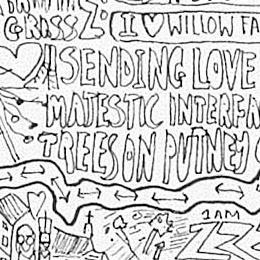 GRASS I ♡ WILLOW FA
SENDING LOVE
MAJESTIC INTERFA
TREES ON PUTNEY
1AM
ZZ